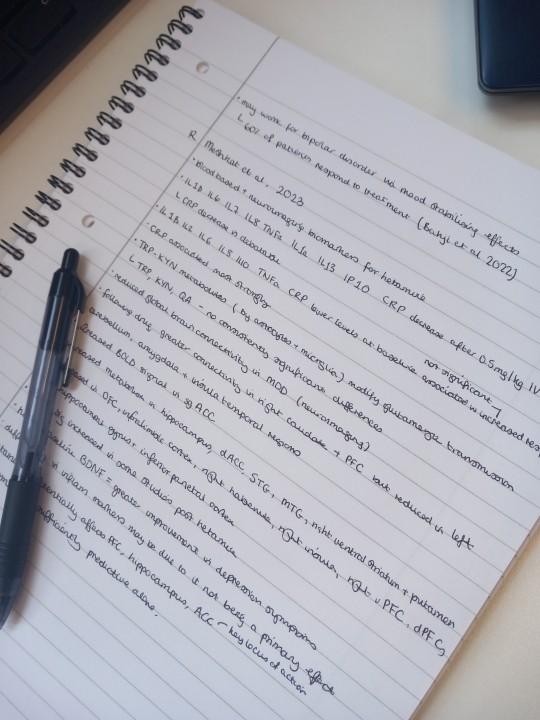 • may work for bipolar disorder via mood stabilising effects
L 60% of patients respond to treatment (Bahji et al 2022)
R Meshkat et al, 2023
• blood based + neuroimaging biomarkers for ketamine
• IL1B IL6 IL7 IL8 TNFa IL1a IL13 IP10 CRP decrease after 0.5mg/kg IV
L CRP decrease is debatable
• IL1B IL2 IL6 IL8 IL10 TNFa CRP lower levels at baseline associated in increased
CRP associated most strongly
not significant
• TRP-KYN metabolites (by astrocytes + microglia) modify glutamergic transmission
L TRP, KYN, QA - no consistently significant differences
• reduced global brain connectivity in MDD (neuroimaging)
• following drug greater connectivity in right caudate + PFC but reduced in left
cerebellum, amygdala + insula temporal regions
BOLD signal in sgACC
metabolism in hippocampus, dACC, STG, MTG, right ventral striatum + putamen
in OFC, infralimbic cortex, right habenula, right insula, right vPFC, dPFC,
hippocampal gyrus, inferior parietal cortex
increased in some studies post ketamine
BDNF = greater improvement in depression symptoms
in inflam markers may be due to it not being a primary effect
effects PFC, hippocampus, ACC - key locus of action
sufficiently predictive alone.